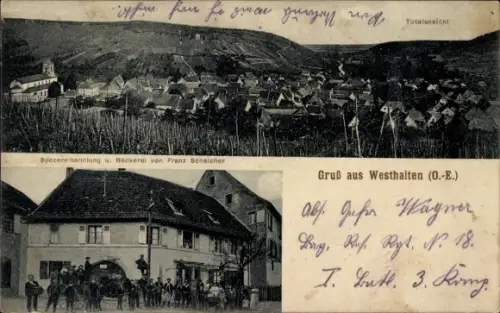 Totalansicht
Spezereihandlung u. Bäckerei von Franz Scheicher
Gruß aus Westhalten (O.-E.)
Abs. Gefr. Wagner
Bay. Res. Rgt. N 18.
I. Batl. 3. Komp.